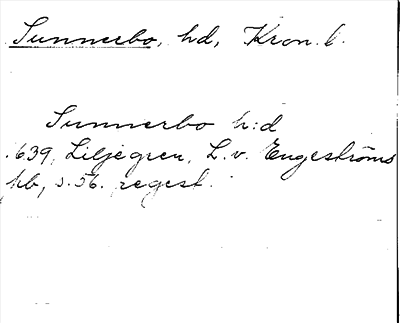 Sunnerbo, hd, Kron. l.
Sunnerbo h:d
639, Liljegren, L. v. Engeströms
hb, s. 56. regest.